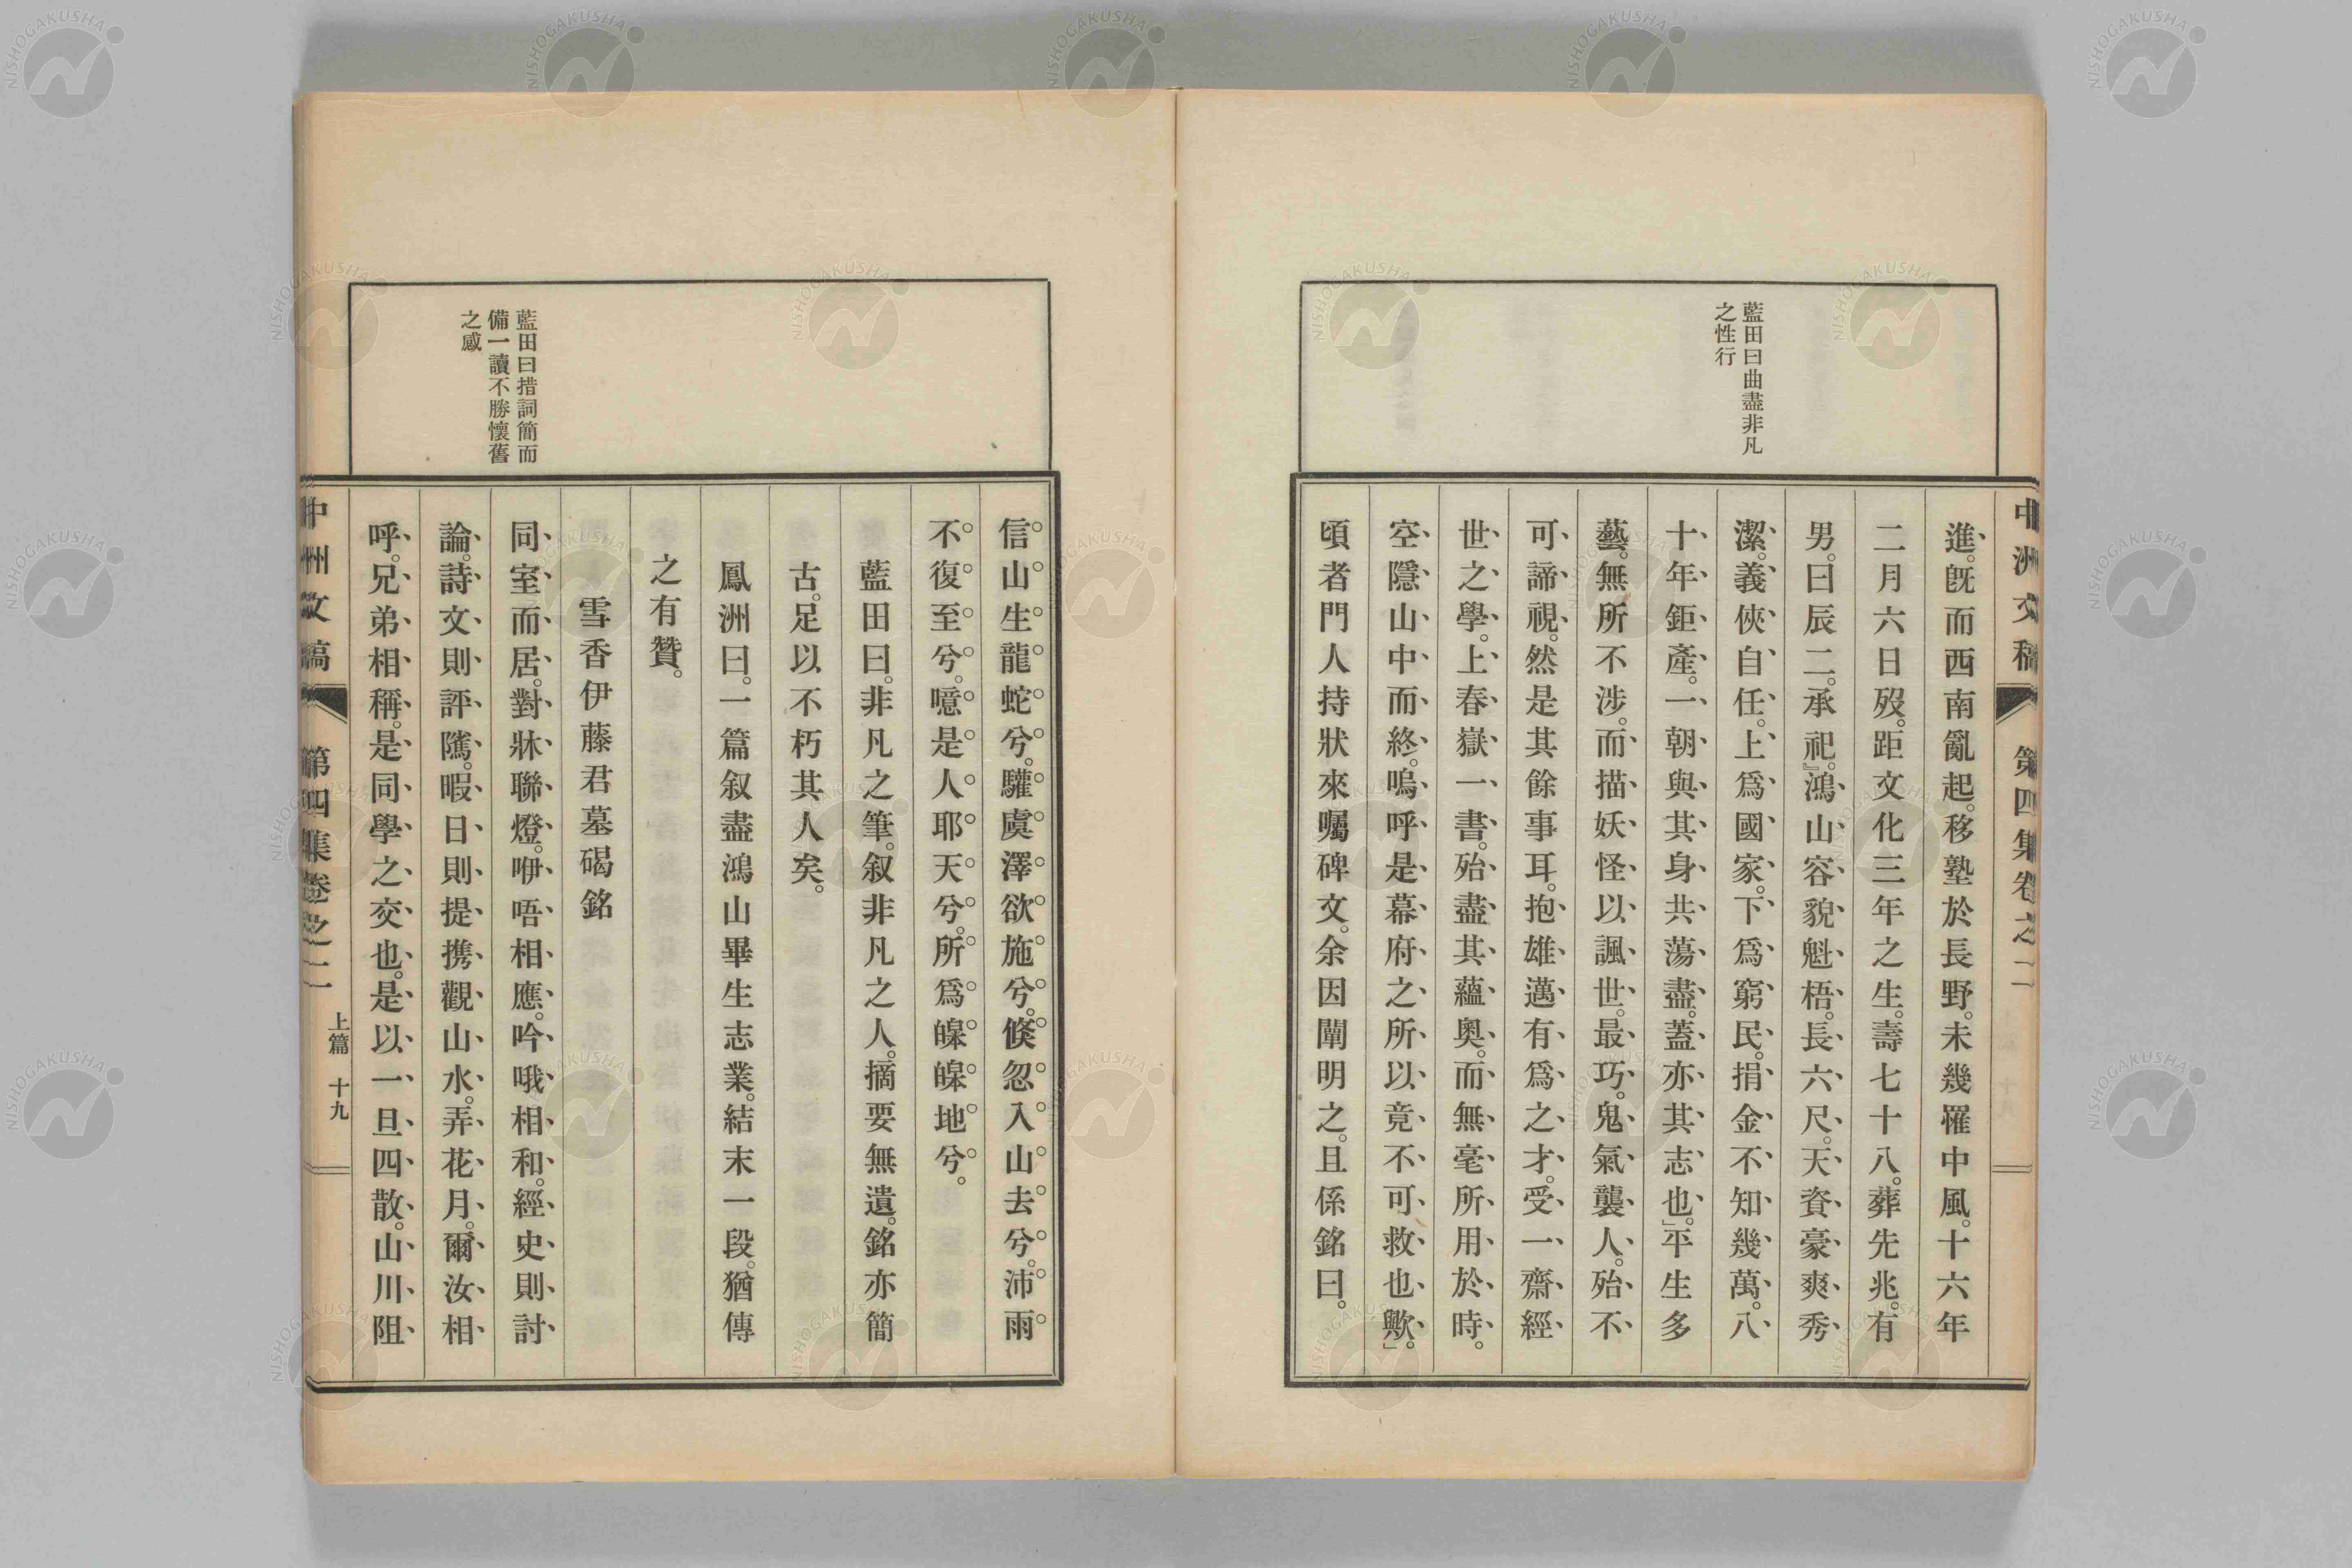 中洲文稿　第四集卷之二
藍田曰曲盡非凡
之性行
進。旣而西南亂起。移塾於長野。未幾罹中風。十六年
二月六日歿。距文化三年之生。壽七十八。葬先兆。有
男。曰辰二。承祀。』鴻山容貌魁梧。長六尺。天資豪爽秀
潔。義俠自任。上爲國家。下爲窮民。捐金不知幾萬。八
十年鉅產。一朝與其身共蕩盡。蓋亦其志也。』平生多
藝。無所不涉。而描妖怪以諷世。最巧。鬼氣襲人。殆不
可諦視。然是其餘事耳。抱雄邁有爲之才。受一齋經
世之學。上春嶽一書。殆盡其蘊奧。而無毫所用於時。
空隱山中而終。嗚呼是幕府之所以竟不可救也歟。』
頃者門人持狀來囑碑文。余因闡明之。且係銘曰。
信山生龍蛇兮。驩虞澤欲施兮。倐忽入山去兮。沛雨
不復至兮。噫是人耶天兮。所爲皞皞地兮。
藍田曰。非凡之筆。叙非凡之人。摘要無遺。銘亦簡
古。足以不朽其人矣。
鳳洲曰。一篇叙盡鴻山畢生志業。結末一段。猶傳
之有贊。
雪香伊藤君墓碣銘
藍田曰措詞簡而
備一讀不勝懷舊
之感
同室而居。對牀聯燈。咿唔相應。吟哦相和。經史則討
論。詩文則評隲。暇日則提携觀山水。弄花月。爾汝相
呼。兄弟相稱。是同學之交也。是以一旦四散。山川阻
中洲文稿　第四集卷之二　上篇　十九
NISHOGAKUSHA